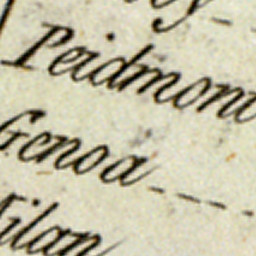 Peidmont
Genoa
Milan